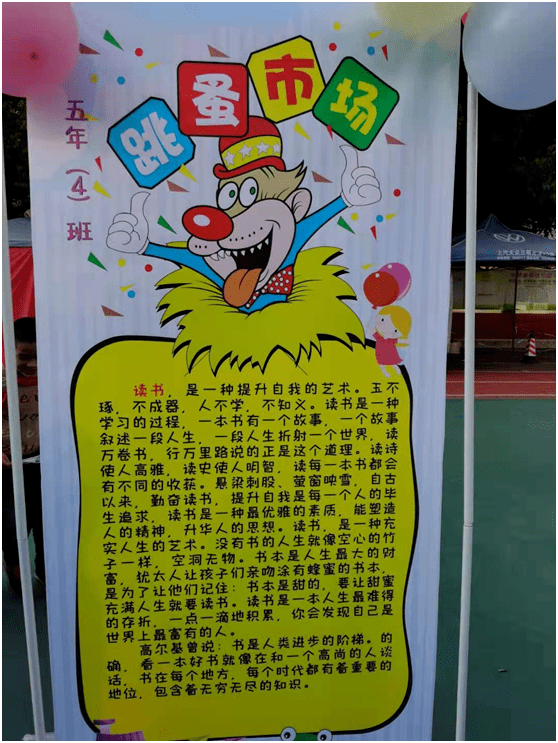 跳蚤市场
五年（4）班
读书，是一种提升自我的艺术。玉不
琢，不成器，人不学，不知义。读书是一种
学习的过程，一本书有一个故事，一个故事
叙述一段人生，一段人生折射一个世界，读
万卷书，行万里路说的正是这个道理。读诗
使人高雅，读史使人明智，读每一本书都会
有不同的收获。悬梁刺股、萤窗映雪，自古
以来，勤奋读书，提升自我是每一个人的毕
生追求，读书是一种最优雅的素质，能塑造
人的精神，升华人的思想。读书，是一种充
实人生的艺术。没有书的人生就像空心的竹
子一样，空洞无物。书本是人生最大的财
富，犹太人让孩子们亲吻涂有蜂蜜的书本，
是为了让他们记住：书本是甜的，要让甜蜜
充满人生就要读书。读书是一本人生最难得
的存折，一点一滴地积累，你会发现自己是
世界上最富有的人。
高尔基曾说：书是人类进步的阶梯。的
确，看一本好书就像在和一个高尚的人谈
话，书在每个地方，每个时代都有着重要的
地位，包含着无穷无尽的知识。